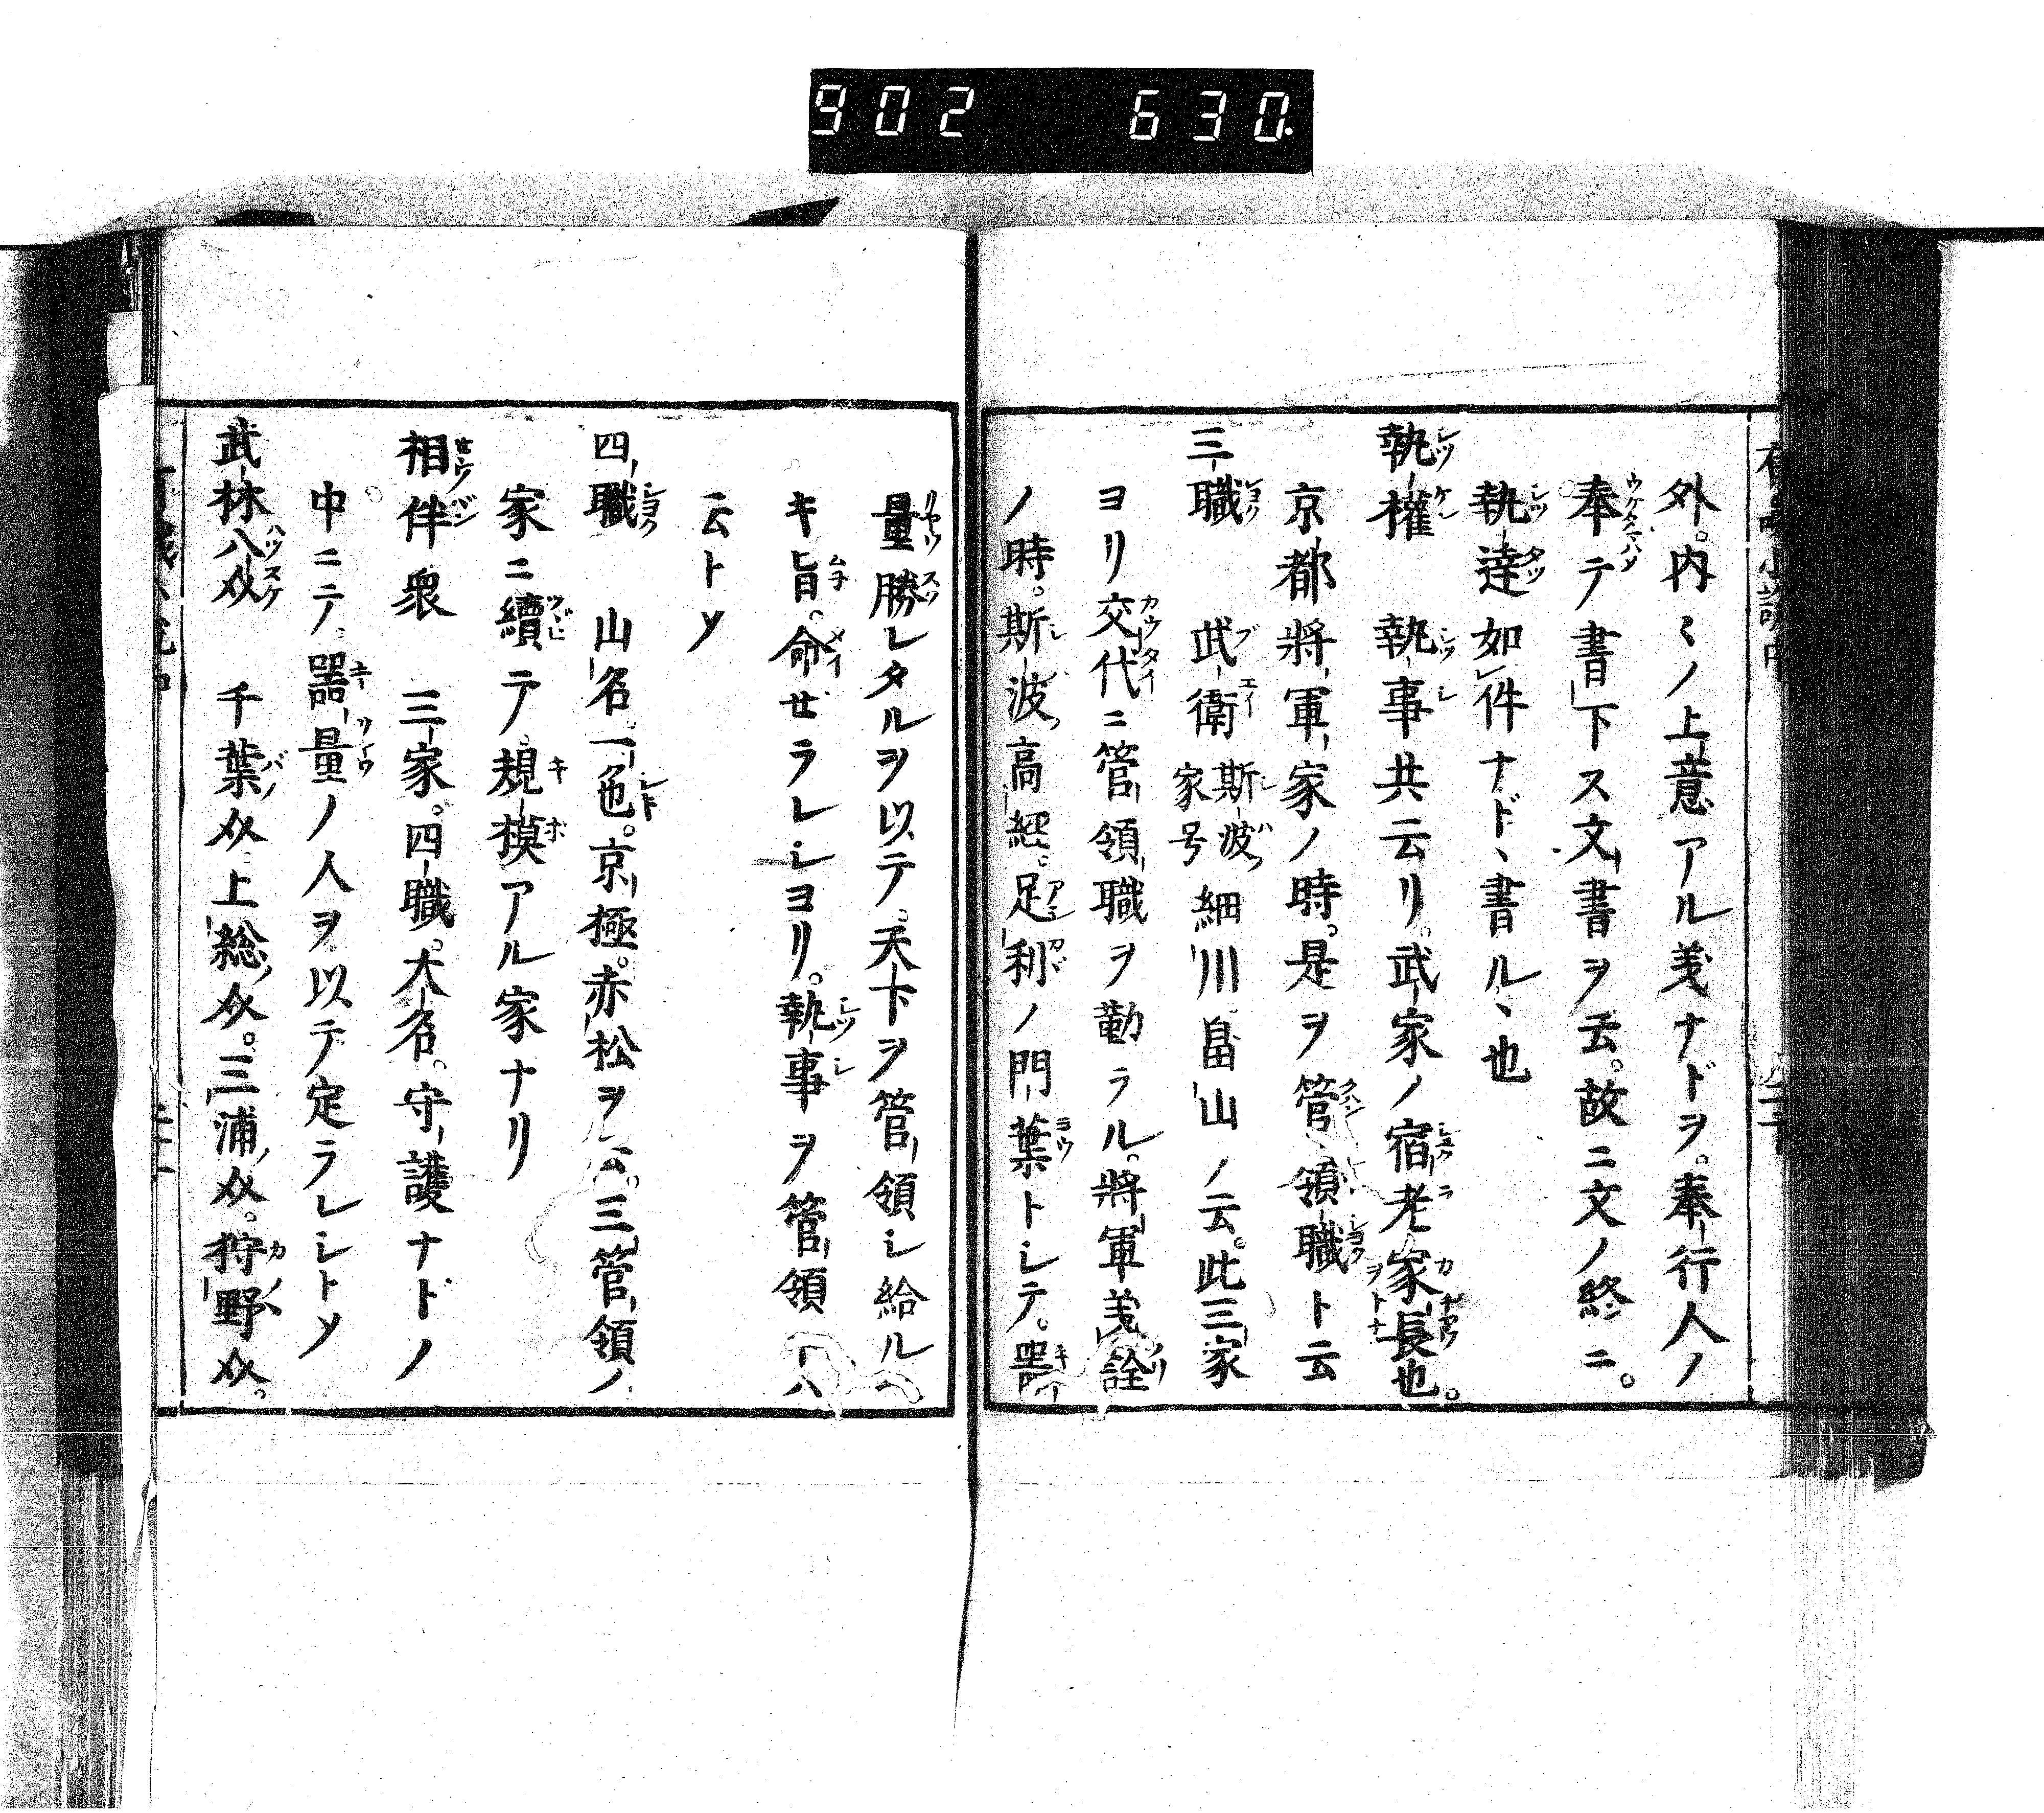 902 630.
外。内〻ノ上意アル義ナドヲ。奉行人ノ
奉テ書下ス文書ヲ云。故ニ文ノ終ニ。
執達如件ナド、書ル、也
執権 執事共云リ。武家ノ宿老家長也。
京都將軍家ノ時。是ヲ管領職ト云
三職 武衛斯波家号細川畠山ノ云。此三家
ヨリ交代ニ管領職ヲ勤ラル。將軍義詮
ノ時。斯波高經。足利ノ門葉トシテ。器
量勝レタルヲ以テ。天下ヲ管領シ給ル
キ旨。命ゼラレシヨリ。執事ヲ管領ト八
云トソ
四職 山名一色。京極。赤松ヲ云。三管領ノ
家ニ續テ。規模アル家ナリ
相伴衆 三家。四職。大名。守護ナドノ
中ニテ。器量ノ人ヲ以テ定ラレシトソ
武林八介 千葉介。上総介。三浦介。狩野介。